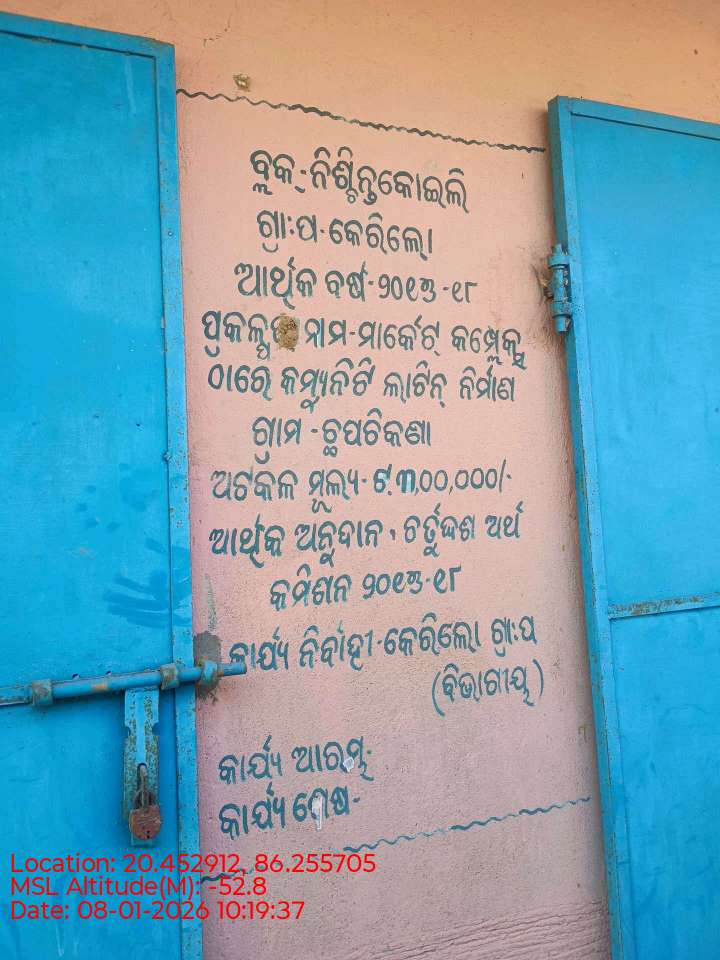 ବ୍ଲକ୍-ନିଶ୍ଚିନ୍ତକୋଇଲି
ଗ୍ରା:ପ-କେରିଲୋ
ଆର୍ଥିକ ବର୍ଷ-୨୦୧୭-୧୮
ପ୍ରକଳ୍ପର ନାମ-ମାର୍କେଟ୍ କମ୍ପ୍ଲେକ୍ସ
ଠାରେ କମ୍ୟୁନିଟି ଲାଟିନ୍ ନିର୍ମାଣ
ଗ୍ରାମ-ଚ୍ଛପଟିକଣା
ଅଟକଳ ମୂଲ୍ୟ-ଟ.୩,୦୦,୦୦୦/-
ଆର୍ଥିକ ଅନୁଦାନ, ଚର୍ତୁଦ୍ଦଶ ଅର୍ଥ
କମିଶନ ୨୦୧୭-୧୮
କାର୍ଯ୍ୟ ନିର୍ବାହୀ-କେରିଲୋ ଗ୍ରା:ପ
(ବିଭାଗୀୟ)
କାର୍ଯ୍ୟ ଆରମ୍ଭ-
କାର୍ଯ୍ୟ ଶେଷ-
Location: 20.452912, 86.255705
MSL Altitude(M): -52.8
Date: 08-01-2026 10:19:37